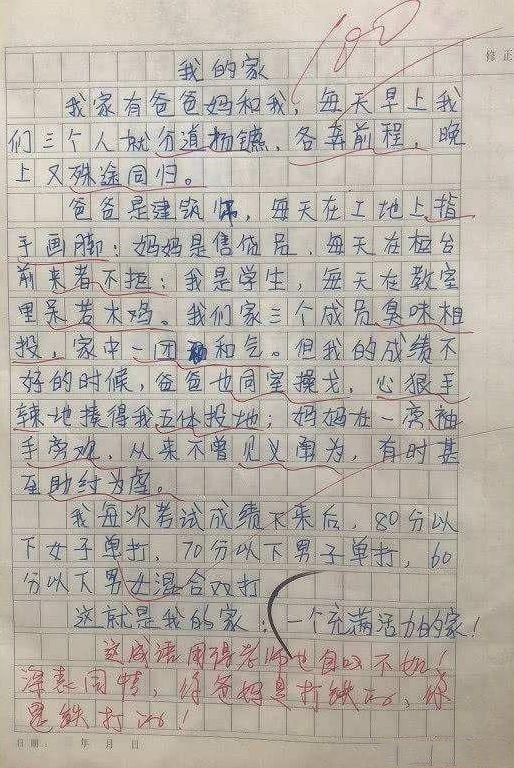 100
修正
我的家
我家有爸爸妈和我,每天早上我
们三个人就分道扬镳,各奔前程,晚
上又殊途同归。
爸爸是建筑师,每天在工地上指
手画脚;妈妈是售货员,每天在柜台
前来者不拒;我是学生,每天在教室
里呆若木鸡。我们家三个成员臭味相
投,家中一团和气。但我的成绩不
好的时候,爸爸也同室操戈,心狠手
辣地揍得我五体投地;妈妈在一旁袖
手旁观,从来不曾见义勇为,有时甚
至助纣为虐。
我每次考试成绩下来后,80分以
下女子单打,70分以下男子单打,60
分以下男女混合双打
这就是我的家:一个充满活力的家!
这成语用得老师也自叹不如!
深表同情,你爸妈是打铁的,你
是铁打的!
日期: 年 月 日